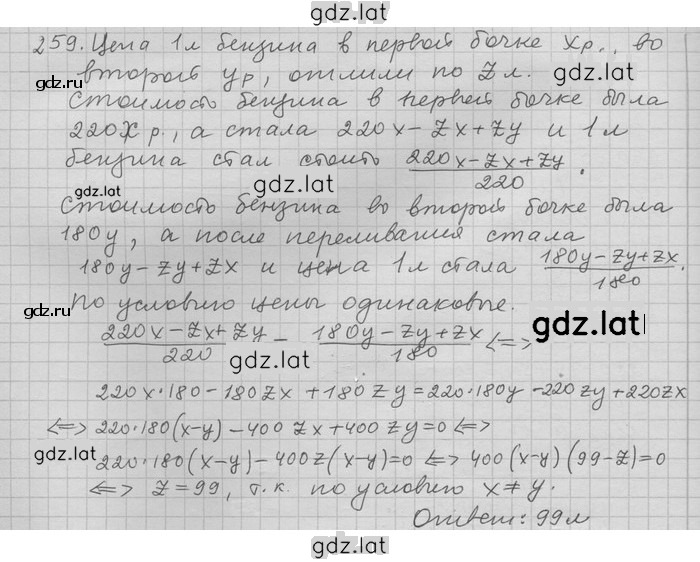 gdz.latl
259. Цена 1 л бензина в первой бочке x р., во
второй y р, отлили по z л. gdz.lat
gdz.lat
Стоимость бензина в первой бочке была
220x р., а стала 220x - zx + zy и 1 л
бензина стал стоить (220x - zx + zy)/220.
gdz.lat
gdz.lat
Стоимость бензина во второй бочке была
180y, а после переливания стала
180y - zy + zx и цена 1 л стала (180y - zy + zx)/180.
gdz.lat
По условию цены одинаковые.
(220x - zx + zy)/220 = (180y - zy + zx)/180 <=> gdz.lat
gdz.lat
220x·180 - 180zx + 180zy = 220·180y - 220zy + 220zx
<=> 220·180(x-y) - 400zx + 400zy = 0 <=>
gdz.lat
220·180(x-y) - 400z(x-y) = 0 <=> 400(x-y)(99-z) = 0
<=> z = 99, т.к. по условию x ≠ y.
Ответ: 99 л
gdz.lat